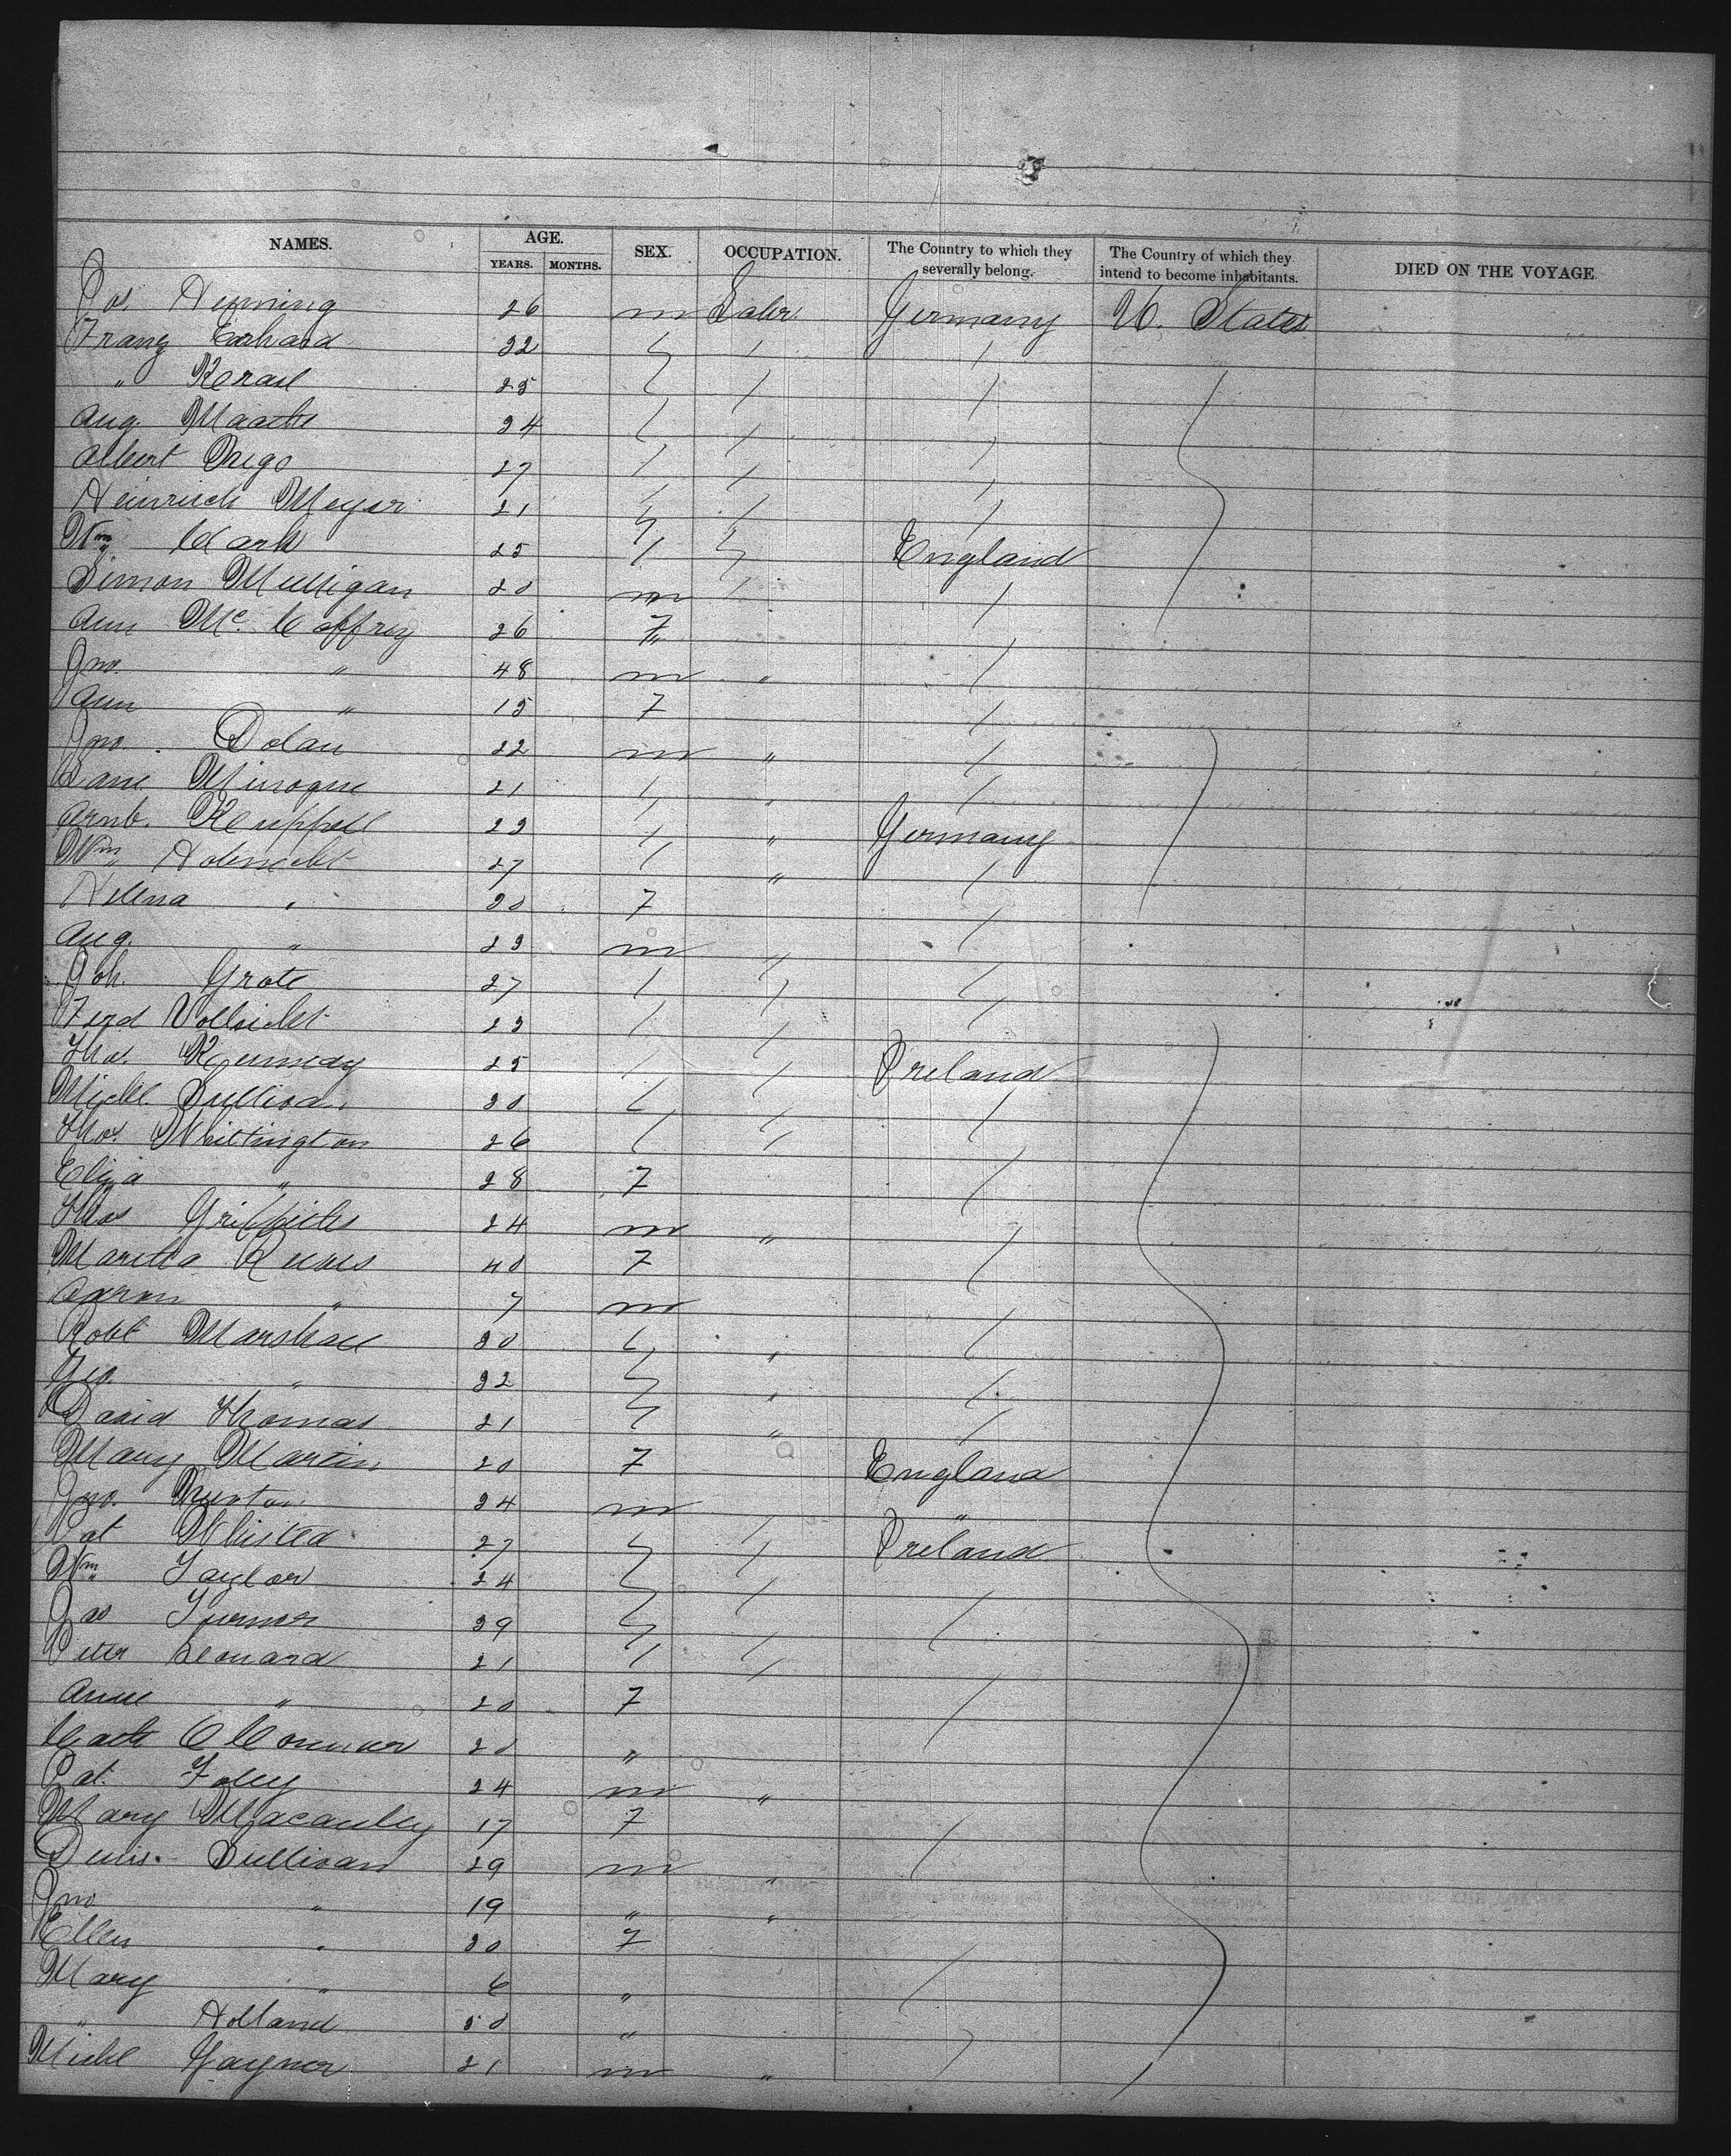 NAMES. AGE. YEARS. MONTHS. SEX. OCCUPATION. The Country to which they severally belong. The Country of which they intend to become inhabitants. DIED ON THE VOYAGE
Jos. Henning 26 m Labr Germany U. States
Franz Erhard 22
" 25
Aug. 24
Albert 27
Heinrich Meyer 21
Wm Clark 25 England
Simon Mulligan 20 m
Ann Mc Caffrey 26 F
Jno. " 48 m "
Ann " 15 F
Jno. Dolan 22 m "
21
23 " Germany
Wm 27 "
Helena " 20 F
Aug. " 23 m
Joh. Grote 27
Ferd 23
Thos. Kennedy 25 Ireland
Michl Sullivan 20
Thos. Whittington 26
Eliza " 28 F
Thos Griffiths 24 m "
Martha 40 F
Aaron " 7 m
Robt Marshall 30 "
Geo " 22 "
David Thomas 21 "
Mary Martin 20 F England
Jno. 24 m "
Pat 27 Ireland
Wm Taylor 24
Jas Turner 29
Peter Leonard 21
Anne " 20 F
Cath O Connor 20 "
Pat. Foley 24 m "
Mary Macaulley 17 F
Denis Sullivan 29 m "
Jno " 19 " "
Ellen " 30 F
Mary " 6 "
" Holland 50 "
Michl Gaynor 21 m "